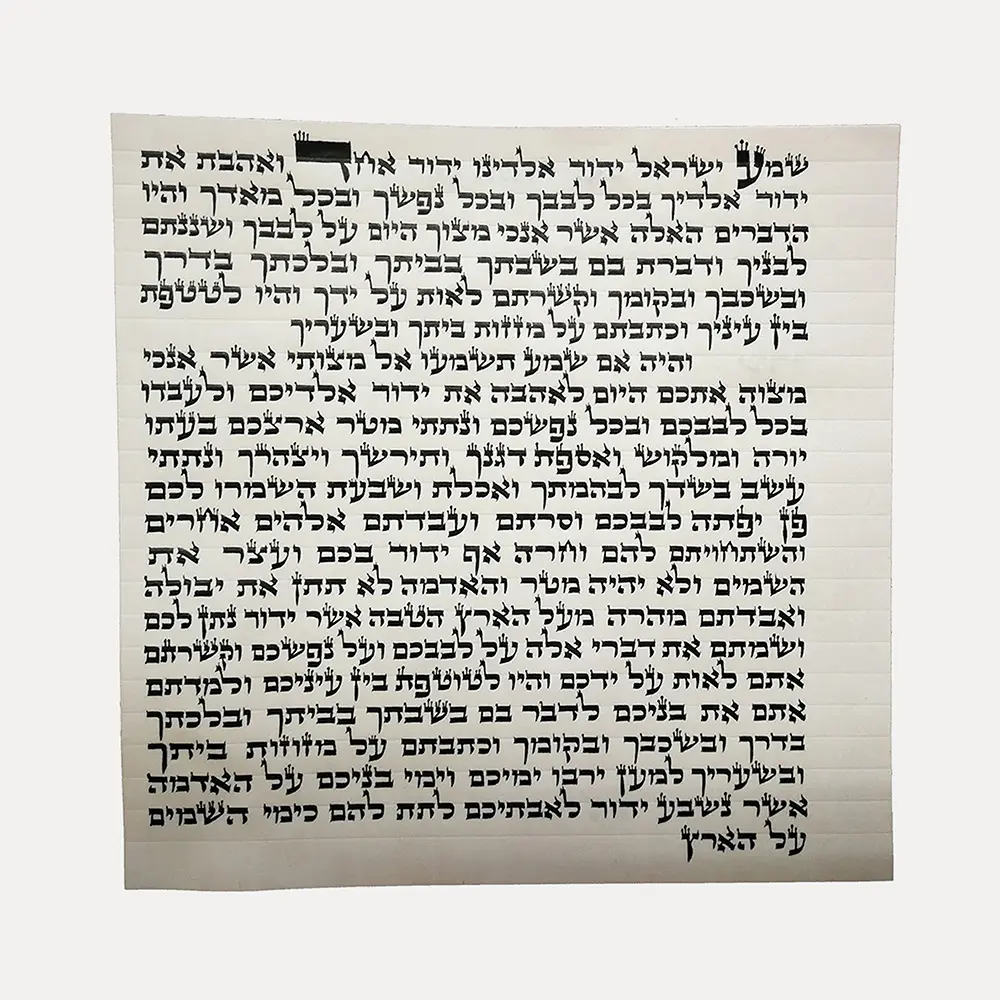 שמע ישראל ידוד אלדינו ידוד אחד ואהבת את
ידוד אלדיך בכל לבבך ובכל נפשך ובכל מאדך והיו
הדברים האלה אשר אנכי מצוך היום על לבבך ושננתם
לבניך ודברת בם בשבתך בביתך ובלכתך בדרך
ובשכבך ובקומך וקשרתם לאות על ידך והיו לטטפת
בין עיניך וכתבתם על מזזות ביתך ובשעריך
והיה אם שמע תשמעו אל מצותי אשר אנכי
מצוה אתכם היום לאהבה את ידוד אלדיכם ולעבדו
בכל לבבכם ובכל נפשכם ונתתי מטר ארצכם בעתו
יורה ומלקוש ואספת דגנך ותירשך ויצהרך ונתתי
עשב בשדך לבהמתך ואכלת ושבעת השמרו לכם
פן יפתה לבבכם וסרתם ועבדתם אלהים אחרים
והשתחויתם להם וחרה אף ידוד בכם ועצר את
השמים ולא יהיה מטר והאדמה לא תתן את יבולה
ואבדתם מהרה מעל הארץ הטבה אשר ידוד נתן לכם
ושמתם את דברי אלה על לבבכם ועל נפשכם וקשרתם
אתם לאות על ידכם והיו לטוטפת בין עיניכם ולמדתם
אתם את בניכם לדבר בם בשבתך בביתך ובלכתך
בדרך ובשכבך ובקומך וכתבתם על מזוזות ביתך
ובשעריך למען ירבו ימיכם וימי בניכם על האדמה
אשר נשבע ידוד לאבתיכם לתת להם כימי השמים
על הארץ